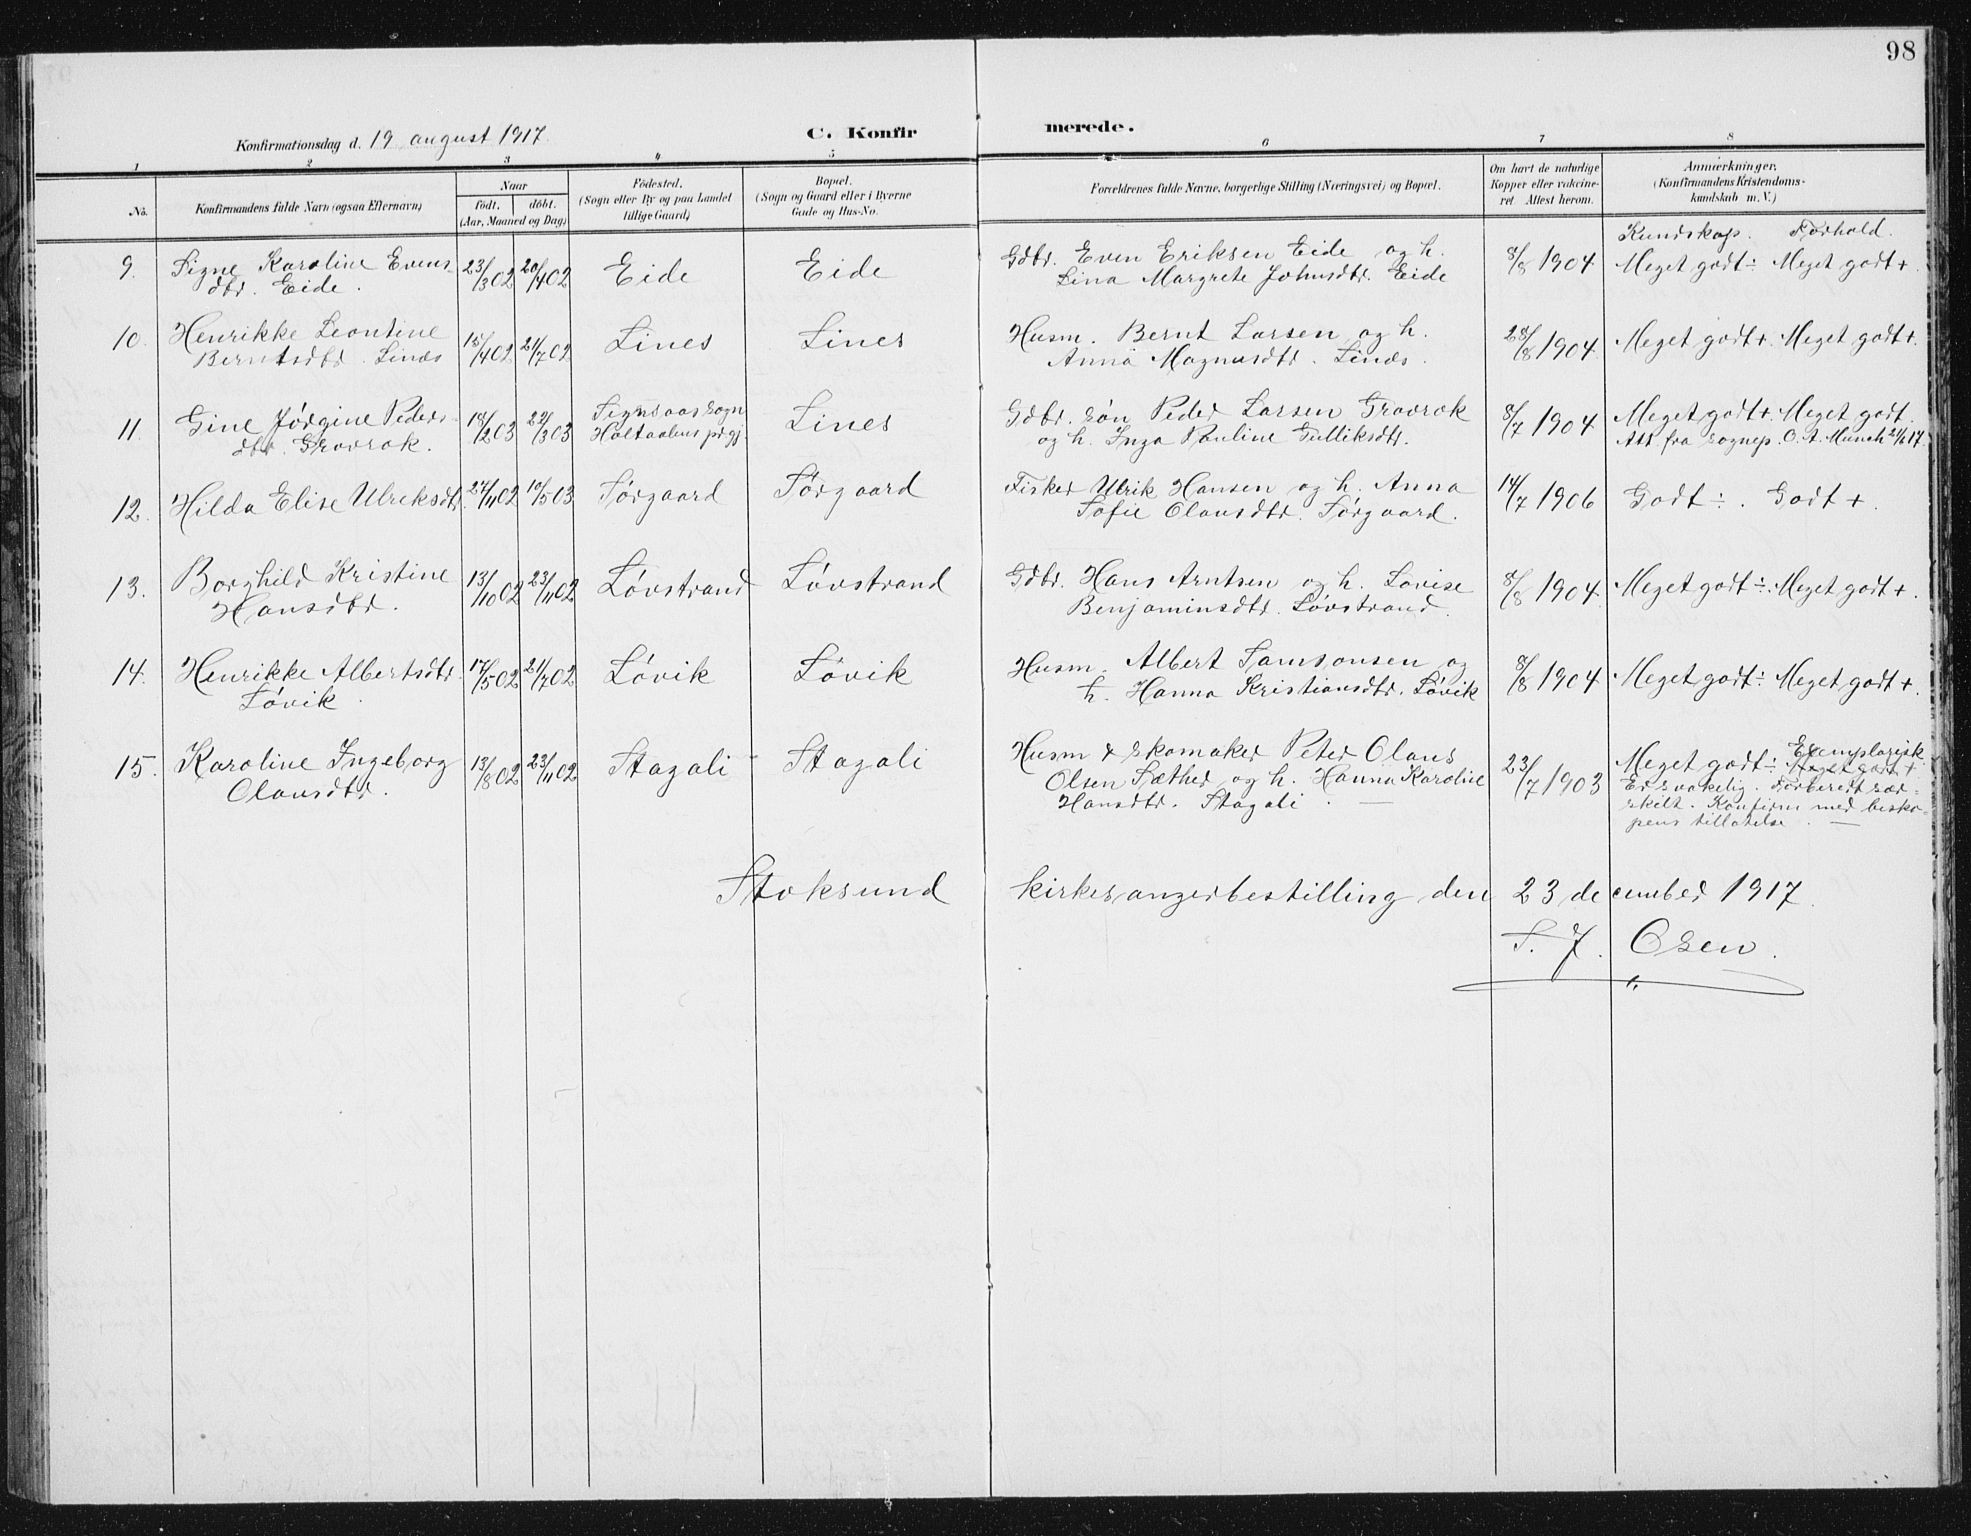 98
Konfirmationsdag d. 19 august 1917.
C. Konfirmerede.
1 2 3 4 5 6 7 8
No. Konfirmandens fulde Navn (ogsaa Efternavn) Naar født. døbt. (Aar, Maaned og Dag) Fødested. (Sogn eller By og paa Landet tillige Gaard) Bopæl. (Sogn og Gaard eller i Byerne Gade og Hus-No. Forældrenes fulde Navne, borgerlige Stilling (Næringsvei) og Bopæl. Om havt de naturlige Kopper eller vakcineret Attest herom. Anmærkninger. (Konfirmandens Kristendomskundskab m. V.)
Kundskap. Forhold.
9. Signe Karoline Evens- 23/3 02 20/4 02 Eide Eide Gdbr. Even Eriksen Eide og h. 8/8 1904 Meget godt÷ Meget godt+.
dtr. Eide. Lina Margrete Johnsdtr. Eide
10. Henrikke Leontine 15/4 02 21/7 02 Lines Lines Husm. Bernt Larsen og h. 28/8 1904 Meget godt+. Meget godt+.
Berntsdtr. Linæs Anna Magnusdtr. Linæs.
11. Gine Jørgine Peders- 18/2 03 22/3 03 Singsaas sogn Lines Gdbr. søn Peder Larsen Grævrok 8/7 1904 Meget godt+. Meget godt.
dtr. Grovrok. Holtaalens prgj. og h. Inga Pauline Tulliksdtr. Att. fra sognep. O. A. Munch 21/6 17.
12. Hilda Elise Ulriksdtr. 24/11 02 10/5 03 Sørgaard Sørgaard Fisker Ulrik Hansen og h. Anna 14/7 1906 Godt÷. Godt+.
Sofie Olausdtr. Sørgaard.
13. Borghild Kristine 13/10 02 23/11 02 Løvstrand Løvstrand Gdbr. Hans Arntsen og h. Lovise 8/8 1904 Meget godt÷. Meget godt+.
Hansdtr. Benjaminsdtr. Løvstrand.
14. Henrikke Albertsdtr. 17/5 02 21/7 02 Løvik Løvik Husm. Albert Samsonsen og 8/8 1904 Meget godt÷ Meget godt+.
Løvik. h. Hanna Kristiansdtr. Løvik
15. Karoline Ingeborg 13/8 02 23/11 02 Stagali Stagali Husm & skomaker Peter Olaus 23/7 1903 Meget godt÷ Exemplarisk Meget godt+
Olausdtr. Olsen Sæther og h. Hanna Karoline Er svakelig. Forberedt sær-
Hansdtr. Stagali. skilt. Konfirm. med bisko-
pens tillatelse.
Stoksund kirkesangerbestilling den 23 december 1917.
S. J. Osen.